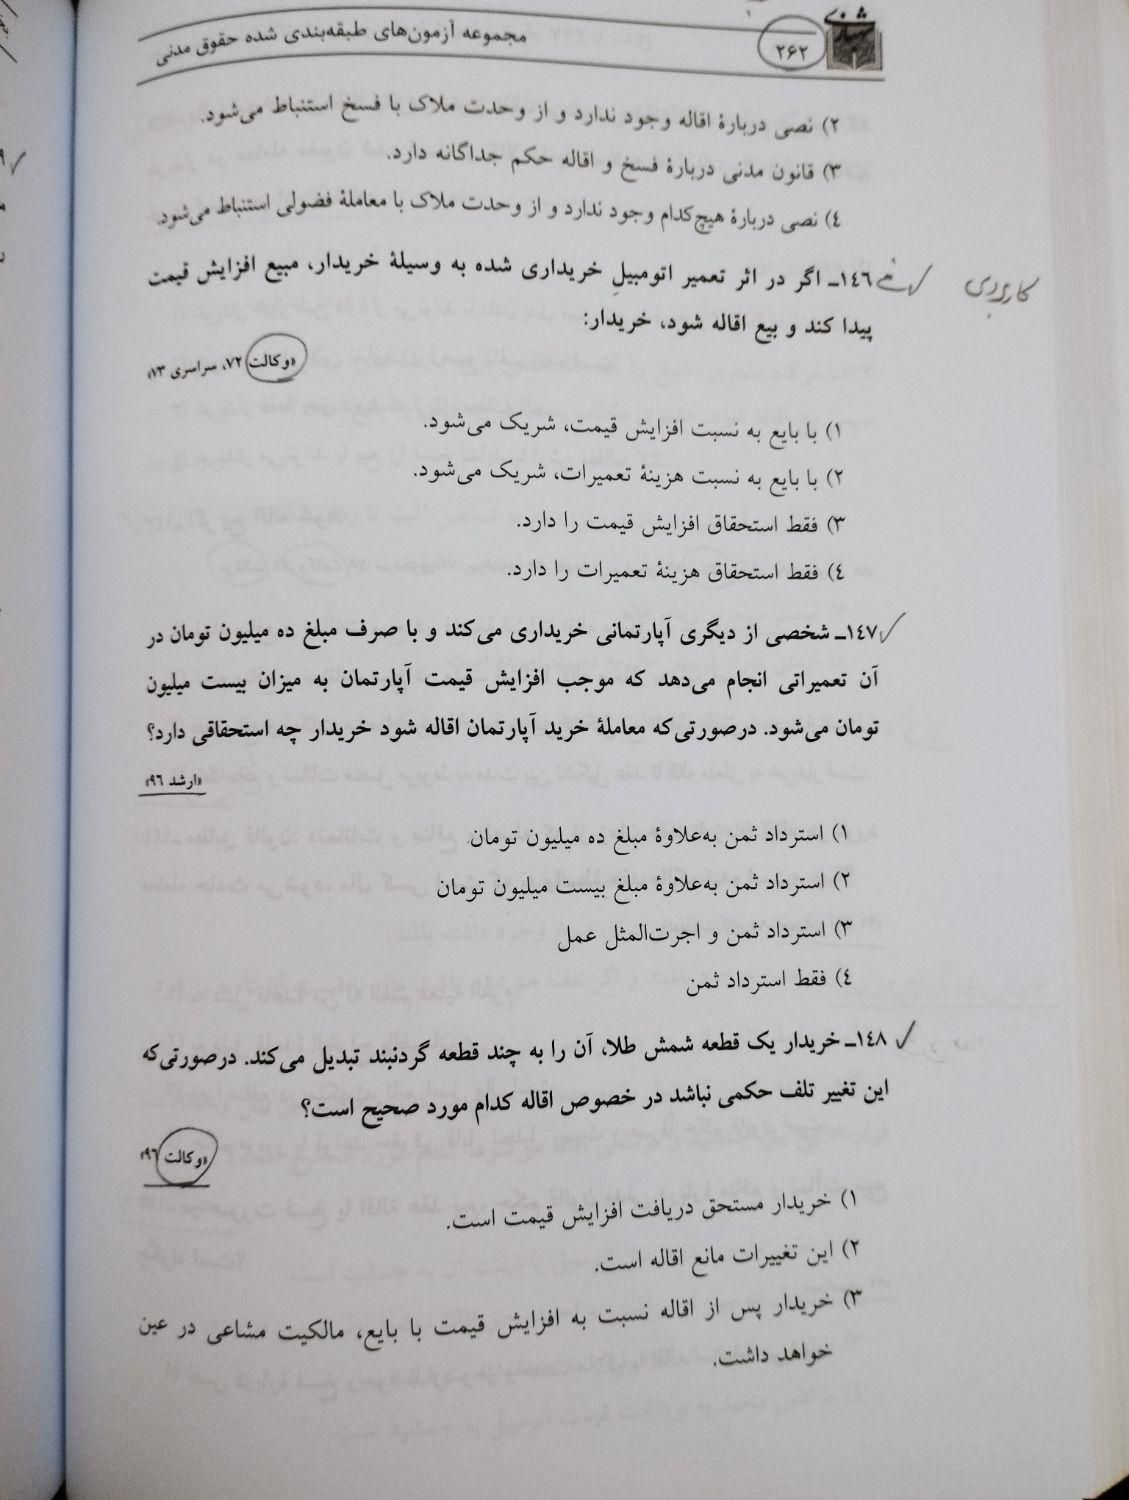 ۲۶۲
مجموعه آزمون‌های طبقه‌بندی شده حقوق مدنی
۲) نصی دربارهٔ اقاله وجود ندارد و از وحدت ملاک با فسخ استنباط می‌شود.
۳) قانون مدنی دربارهٔ فسخ و اقاله حکم جداگانه دارد.
٤) نصی دربارهٔ هیچ‌کدام وجود ندارد و از وحدت ملاک با معاملهٔ فضولی استنباط می‌شود.
کاربردی
۱٤۶ـ اگر در اثر تعمیر اتومبیلِ خریداری شده به وسیلهٔ خریدار، مبیع افزایش قیمت
پیدا کند و بیع اقاله شود، خریدار:
«وکالت ۷۲، سراسری ۱۳»
۱) با بایع به نسبت افزایش قیمت، شریک می‌شود.
۲) با بایع به نسبت هزینهٔ تعمیرات، شریک می‌شود.
۳) فقط استحقاق افزایش قیمت را دارد.
٤) فقط استحقاق هزینهٔ تعمیرات را دارد.
۱٤۷ـ شخصی از دیگری آپارتمانی خریداری می‌کند و با صرف مبلغ ده میلیون تومان در
آن تعمیراتی انجام می‌دهد که موجب افزایش قیمت آپارتمان به میزان بیست میلیون
تومان می‌شود. درصورتی‌که معاملهٔ خرید آپارتمان اقاله شود خریدار چه استحقاقی دارد؟
«ارشد ۹۶»
۱) استرداد ثمن به‌علاوهٔ مبلغ ده میلیون تومان
۲) استرداد ثمن به‌علاوهٔ مبلغ بیست میلیون تومان
۳) استرداد ثمن و اجرت‌المثل عمل
٤) فقط استرداد ثمن
۱٤۸ـ خریدار یک قطعه شمش طلا، آن را به چند قطعه گردنبند تبدیل می‌کند. درصورتی‌که
این تغییر تلف حکمی نباشد در خصوص اقاله کدام مورد صحیح است؟
«وکالت ۹۶»
۱) خریدار مستحق دریافت افزایش قیمت است.
۲) این تغییرات مانع اقاله است.
۳) خریدار پس از اقاله نسبت به افزایش قیمت با بایع، مالکیت مشاعی در عین
خواهد داشت.